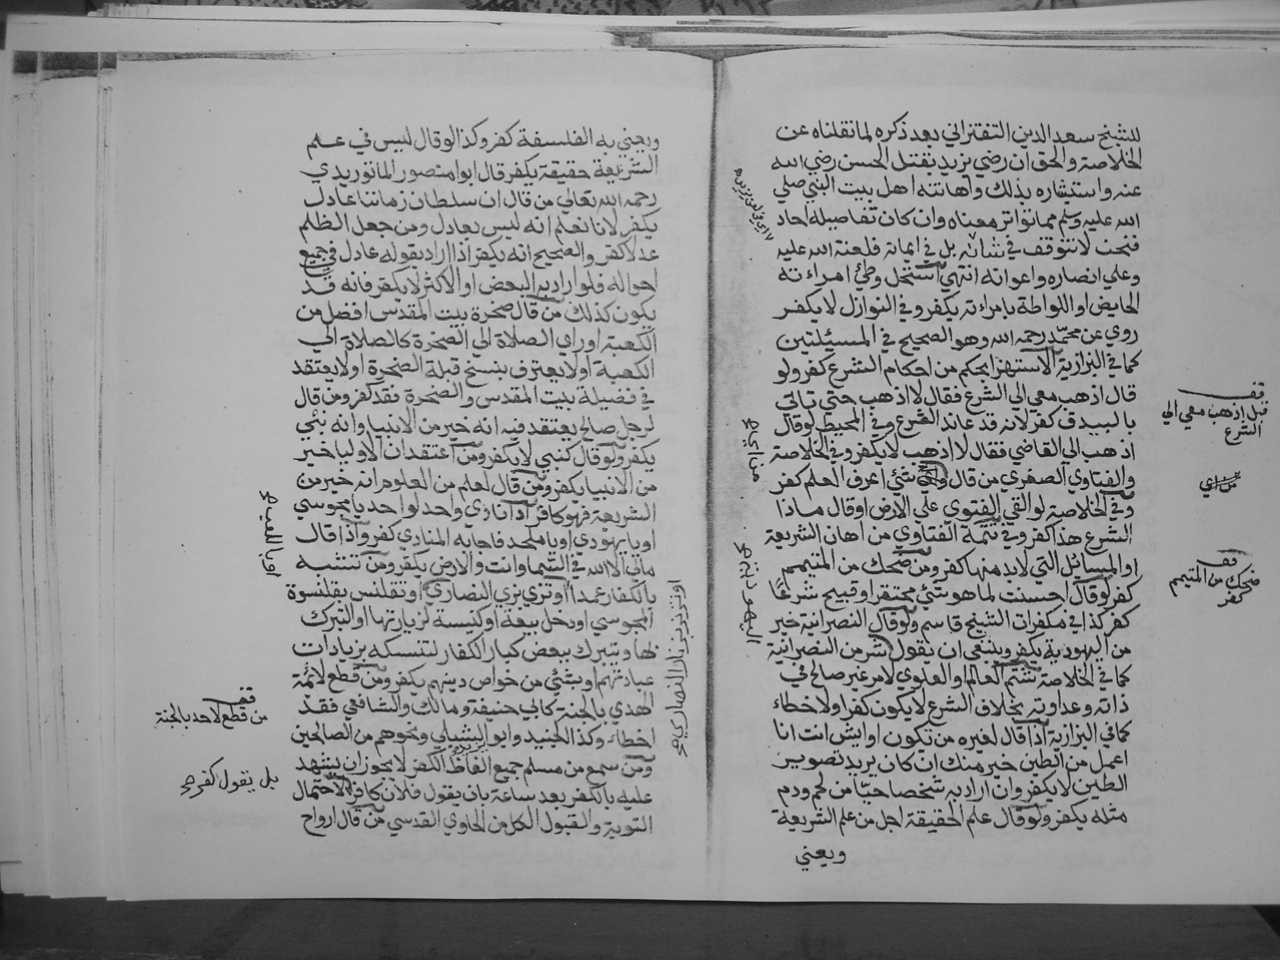 للشيخ سعد الدين التفتزاني بعد ذكره لما نقلناه عن
الخلاصة والحق ان رضي يزيد بقتل الحسن رضي الله
عنه واستبشاره بذلك واهانته اهل بيت النبي صلي
الله عليه وسلم مما تواتر معناه وان كان تفاصيله احاد
فنحن لا نتوقف في شانه بل في ايمانه فلعنة الله عليه
وعلي انصاره واعوانه انتهي استحل وطئ امراءته
الحايض او اللواطة بامراته يكفر وفي النوازل لا يكفر
روي عن محمد رحمه الله وهو الصحيح في المسيئلتين
كما في البزازية الاستهزا بحكم من احكام الشرع كفر ولو
قال اذهب معي الي الشرع فقال لا اذهب حتي تاتي
بالبيدق كفر لانه قد عاند الشرع وفي المحيط لو قال
اذهب الي القاضي فقال لا اذهب لا يكفر وفي الخلاصة
والفتاوي الصغري من قال شئ اعرف العلم كفر
وفي الخلاصة لو القي الفتوي علي الارض او قال ماذا
الشرع هذا كفر وفي تتمة الفتاوي من اهان الشريعة
او المسائل التي لا بد منها كفر ومن ضحك من المتيمم
كفر لو قال احسنت لما هو شئ محتقر او قبيح شرعا
كفر كذا في مكفرات الشيخ قاسم ولو قال النصرانية خير
من اليهودية يكفر وينبغي ان يقول شر من النصرانية
كما في الخلاصة شتم العالم والعلوي لامر غير صالح في
ذاته وعداوته بخلاف الشرع لا يكون كفرا ولا خطاء
كما في البزازية اذا قال لغيره من تكون او ايش انت انا
اعمل من الطين خير منك ان كان يريد تصوير
الطين لا يكفر وان اراد به شخصا حيا من لحم ودم
مثله يكفر ولو قال علم الحقيقة اجل من علم الشريعة
ويعني
قف
قبل اذهب معي الي
الشرع
قف
ضحك من المتيمم
كفر
ويعني به الفلسفة كفر وكذا لو قال ليس في علم
الشريعة حقيقة يكفر قال ابوا منصور الماتوريدي
رحمه الله تعالي من قال ان سلطان زماننا عادل
يكفر لانا نعلم انه ليس بعادل ومن جعل الظلم
عدلا كفر والصحيح انه يكفر اذا اراد بقوله عادل في جميع
احواله فلو اراد به البعض او الاكثر لا يكفر فانه قد
يكون كذلك من قال صخرة بيت المقدس افضل من
الكعبة او راي الصلاة الي الصخرة كالصلاة الي
الكعبة او لا يعترف بنسخ قبلة الصخرة او لا يعتقد
في فضيلة بيت المقدس والصخرة فقد كفر ومن قال
لرجل صالح يعتقد فيه انه خير من الانبيا وانه نبئ
يكفر ولو قال كنبي لا يكفر ومن اعتقد ان الاوليا خير
من الانبيا يكفر ومن قال لعلم من العلوم انه خير من
الشريعة فهو كافر اذا نادي واحد لواحد يا مجوسي
او يا يهودي او يا ملحد فاجابه المنادي كفر واذا قال
ماني الا الله في السماوات والارض يكفر ومن تشبه
بالكفار عمدا او تزي بزي النصاري او تقلنس بقلنسوة
المجوسي او دخل بيعة او كنيسة لزيارتها او التبرك
بها ويتبرك ببعض كبار الكفار لتنسكه بزيادات
عبادتهم او بشئي من خواص دينهم يكفر ومن قطع لائمة
الهدي بالجنة كابي حنيفة ومالك والشافعي فقد
اخطاء وكذا الجنيد وابو الشبلي ونحوهم من الصالحين
ومن سمع من مسلم جميع الفاظ الكفر لا يجوز ان يشهد
عليه بالكفر بعد ساعة بان يقول فلان كافر لاحتمال
التوبة والقبول الكل من الحاوي القدسي من قال ارواح
قف
من قطع لاحد بالجنة
بل يقول كفر صح